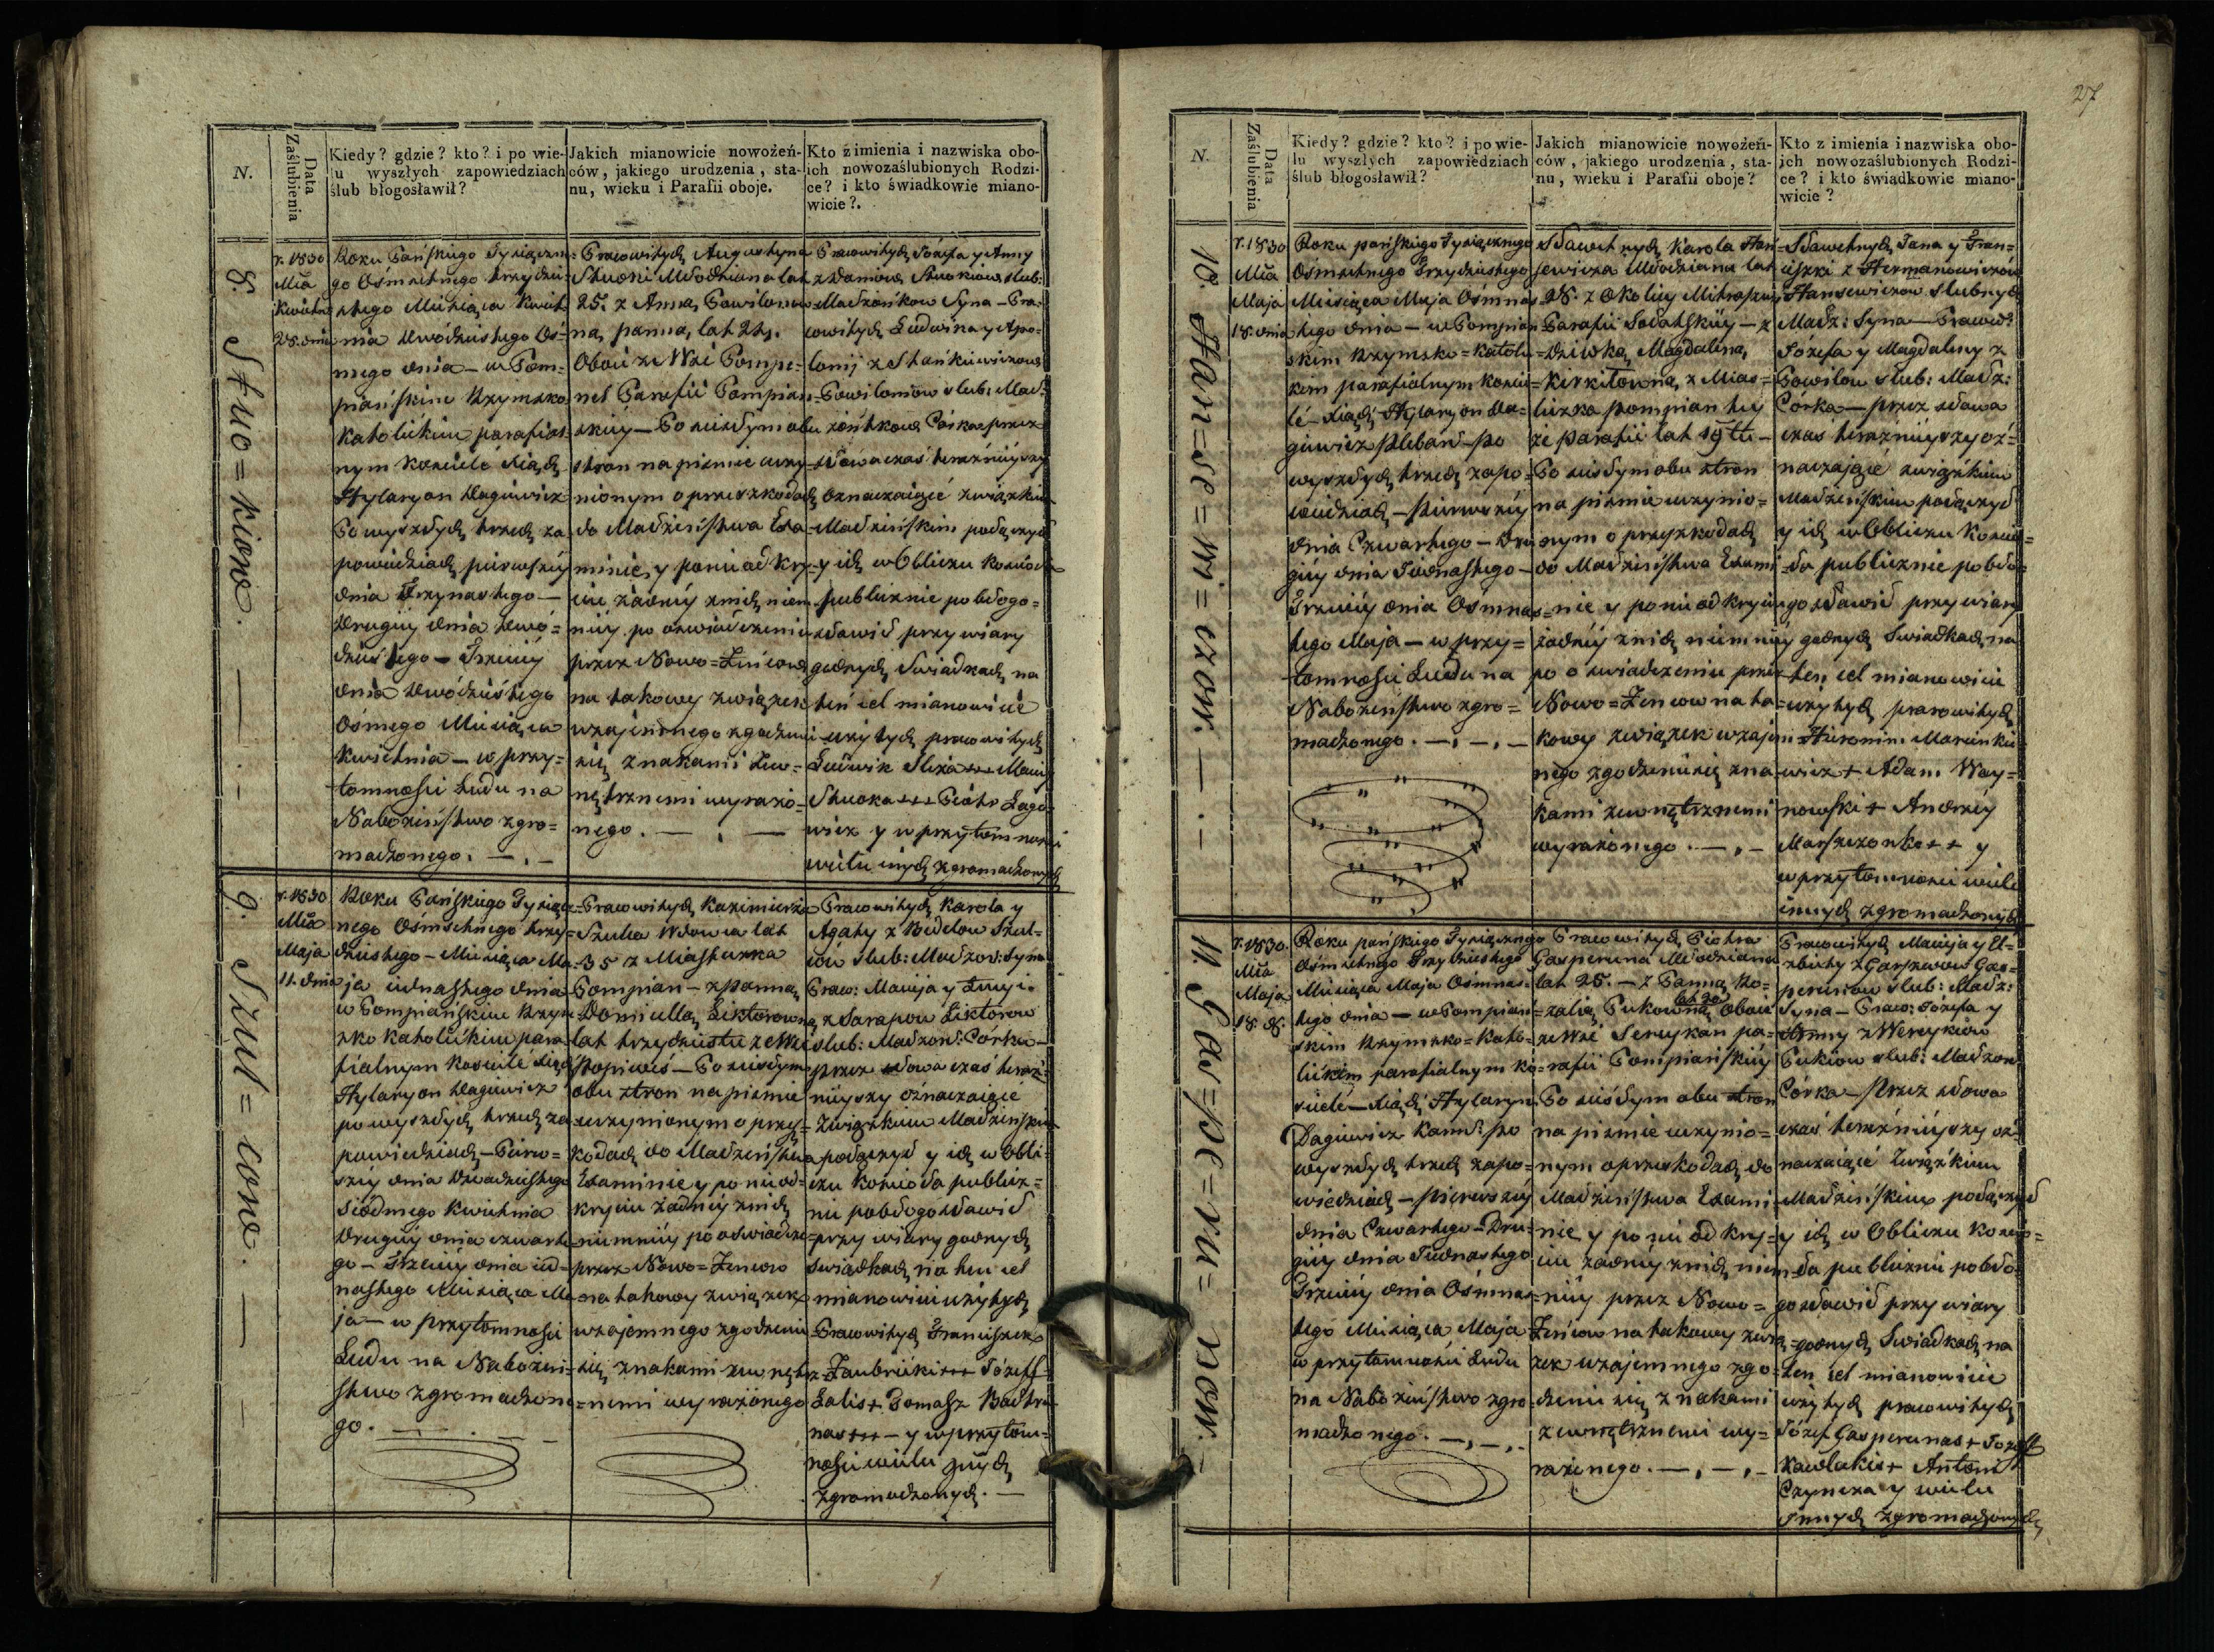 27
N.
Data
Zaślubienia
Kiedy? gdzie? kto? i po wie-
lu wyszłych zapowiedziach
ślub błogosławił?
Jakich mianowicie nowożeń-
ców, jakiego urodzenia, sta-
nu, wieku i Parafii oboje.
Kto z imienia i nazwiska obo-
ich nowozaślubionych Rodzi-
ce? i kto świadkowie miano-
wicie?.
8. Stuo=kiow.
r. 1830
Mca
Kwietnia
28. dnia
Roku Pańskiego Tysiączne=
go Ośmsetnego trzydzie=
stego Miesiąca Kwiet=
nia dwódziestego Oś=
mego dnia – w Pom=
piańskim Rzymsko
Katolickim parafial=
nym Kościele Xiądz
Hylaryon Dagiewicz
Po wyszłych trzech za
powiedziach pierwszéy
dnia Trzynastego —
Drugiéy dnia dwó=
dziestego – Trzeciéy
dnia dwódziestego
Ośmego Miesiąca
Kwietnia – w przy=
tomności Ludu na
Nabożeństwo zgro=
madzonego.
Pracowitych Augustyna
Stuoki Młodziana lat
25. z Anną Powilonow
na, panną, lat 24.
Oboie ze Wsi Pompe=
nel Parafii Pompiań=
skiéy – Po ześłym obu
stron na piśmie uczy=
nionym o przeszkodach
do Małżeństwa Exa=
minie, y po nieodkry=
ciu żadnéy z nich niem=
niéy po oświadczeniu
przez Nowo=Żeńcow
na takowy związek
wzajemnego zgodzenia
się znakami zew=
nętrznemi wyrażo=
nego.
Pracowitych Józefa y Anny
z Adamów Stuokiow slub:
Małżonkow Syna – Pra=
cowitych Ludwika y Apo=
lonij z Stankiewiczow
Powilonow slub: Mał:
żonkow Córkę przez
słowa czas teraźnieyszy
Oznaczaiące związkiem
Małżeńskim połączył
y ich w Obliczu Kościoła
publicznie pobłogo=
sławił przy wiary
godnych Swiadkach na
ten cel mianowicie
użytych pracowitych
Ludwik Sliża +++ Maciey
Stuoka +++ Piotr Łago=
wicz y w przytomności
wielu innych zgromadzonych
9. Szul=cow.
r. 1830
Mca
Maja
11. dnia
Roku Pańskiego Tysiącz=
nego Ośmsetnego trzy=
dziestego – Miesiąca Ma=
ja jednastego dnia
w Pompiańskim Rzym
sko katolickim para=
fialnym Kościele Xiądz
Hylaryon Dagiewicz
po wyszłych trzech za
powiedziach – Pierw=
széy dnia dwadziestego
Siódmego Kwietnia
Drugiéy dnia czwarte
go – Trzeciéy dnia jed=
nastego Miesiąca Ma
ja – w przytomności
Ludu na Nabożeń=
stwo zgromadzone
go.
Pracowitych Kazimierza
Szulca Wdowca lat
35 z Miasteczka
Pompian – z panną
Domicellą Liktorowną
lat trzydziestu ze Wsi
Popiwés – Po ześłym
obu stron na piśmie
uczynionym o przesz=
kodach do Małżeństwa
Examinie y po nieod=
kryciu żadnéy z nich
niemniéy po oswiadcze=
przez Nowo=Żencow
na takowy związek
wzajemnego zgodzenia
się znakami zewnętrz
nemi wyrażonego
Pracowitych Karola y
Agaty z Budelow Szul=
cow slub: Małżon: Syna
Prac: Macieja y Łucyi
z Sarapow Liktorow
slub: Małżon: Córkę –
przez słowa czas teraź=
nieyszy oznaczaiące
Związkiem Małżeńskim
połączył y ich w Obli=
czu Kościoła publicz=
nie pobłogosławił
przy wiary godnych
swiadkach na ten cel
mianowicie użytych
Pracowitych Franciszek
Zaubricki +++ Józeff
Lalis + Tomasz
nas +++ – y w przytom=
ności wielu innych
zgromadzonych. —
N.
Data
Zaślubienia
Kiedy? gdzie? kto? i po wie-
lu wyszłych zapowiedziach
ślub błogosławił?
Jakich mianowicie nowożeń-
ców, jakiego urodzenia, sta-
nu, wieku i Parafii oboje?
Kto z imienia i nazwiska obo-
ich nowozaślubionych Rodzi-
ce? i kto świadkowie miano-
wicie?
10. Han=se=wi=czow.
r. 1830
Mca
Maja
18. dnia
Roku pańskiego Tysiącznego
Ośmsetnego Trzydziestego
Miesiąca Maja Ośmnas
tego dnia – w Pompian
skim Rzymsko=Katoli=
kim parafialnym Kości=
ele Xiądz Hylaryon Da=
giewicz Pleban – po
wyszłych trzech zapo=
wiedziach – pierwszéy
dnia Czwartego – Dru
giéy dnia Jednastego –
Trzeciéy dnia Ośmnas=
tego Maja – w przy=
tomności Ludu na
Nabożeństwo zgro=
madzonego.
Sławetnych Karola Han
sewicza Młodziana lat
28. z Okolicy
Parafii Sołatskiéy – z
dziewką Magdaleną
Kirkitowną z Mias=
teczka pompian tey
że parafii lat 19tu –
Po ześłym obu stron
na piśmie uczynio=
nym o przeszkodach
do Małżeństwa Exami
nie y po nieodkryciu
żadnéy z nich niemniéy
po oświadczeniu przez
Nowo=Żencow na ta=
kowy związek wzajem
nego zgodzenia się zna=
kami zewnętrznemi
wyrażonego.
Sławetnych Jana y Fran=
ciszki z Hermanowiczów
Hansewiczow slubnych
Małż: Syna – Pracow:
Józefa y Magdaleny z
Powilow slub: Małż:
Córkę – przez słowa
czas teraźnieyszy oz=
naczające związkiem
Małżeńskim połączył
y ich w Obliczu Kościo=
ła publicznie pobło=
gosławił przy wiary
godnych Swiadkach na
ten cel mianowicie
użytych pracowitych
Hieronim Marcinkie
wicz + Adam Woy=
nowski + Andrzéy
++ y
w przytomności wielu
innych zgromadzonych
11. Gas=pe=ru=now.
r. 1830
Mca
Maja
18. d.
Roku pańskiego Tysiącznego
Ośmsetnego Trzydziestego
Miesiąca Maja Ośmnas=
tego dnia – w Pompian=
skim Rzymsko=Kato=
lickim parafialnym ko=
sciele – Xiądz Hylaryon
Dagiewicz Kanon: po
wyszłych trzech zapo=
wiedziach – pierwszéy
dnia Czwartego – Dru=
giéy dnia Jednastego
Trzeciéy dnia Ośmnas=
tego Miesiąca Maja
w przytomności Ludu
na Nabożeństwo zgro
madzonego.
Pracowitych Piotra
Gasperuna Młodziana
lat 25. – z Panną Ro=
zalią Pukowną lat 20 Oboie
ze Wsi Sereykan pa=
rafii Pompiańskiéy
Po ześłym obu stron
na piśmie uczynio=
nym o przeszkodach do
Małżeństwa Exami=
nie y po nieodkry=
ciu żadnéy z nich niem=
niéy przez Nowo=
Żeńcow na takowy zwią=
zek wzajemnego zgo=
dzenia się znakami
zewnętrznemi wy=
rażonego.
Pracowitych Macieja y El=
zbiety z Garszwow Gas=
perunow slub: Małż:
Syna – Prac: Józefa y
Anny z Werykiow
Pukiow slub: Małżon
Córkę – przez słowa
czas teraźnieyszy oz=
naczaiące Związkiem
Małżeńskim połączył
y ich w Obliczu Kościo=
ła publicznie pobło=
gosławił przy wiary
godnych Swiadkach na
ten cel mianowicie
użytych pracowitych
Józef Gasperunas + Jozeff
Kawlukis + Antoni
Czyncza y wielu
innych zgromadzonych